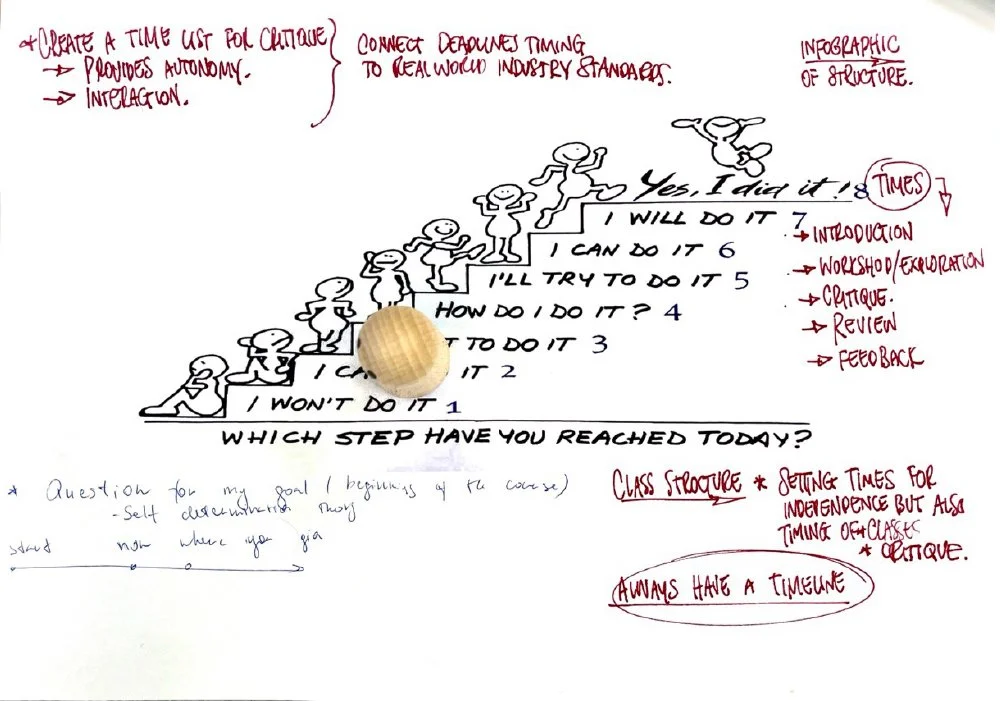 *CREATE A TIME LIST FOR CRITIQUE
→ PROVIDES AUTONOMY.
→ INTERACTION.
CONNECT DEADLINES TIMING
TO REAL WORLD INDUSTRY STANDARDS.
INFOGRAPHIC
OF STRUCTURE.
Yes, I did it! 8
I WILL DO IT 7
I CAN DO IT 6
I'LL TRY TO DO IT 5
HOW DO I DO IT? 4
T TO DO IT 3
I CA IT 2
I WON'T DO IT 1
WHICH STEP HAVE YOU REACHED TODAY?
TIMES
→ INTRODUCTION
→ WORKSHOP/EXPLORATION
→ CRITIQUE.
→ REVIEW
→ FEEDBACK
* Question for my goal (beginning of the course)
- Self determination
start now where you
CLASS STRUCTURE * SETTING TIMES FOR
INDEPENDENCE BUT ALSO
TIMING OF CLASSES
* CRITIQUE.
ALWAYS HAVE A TIMELINE